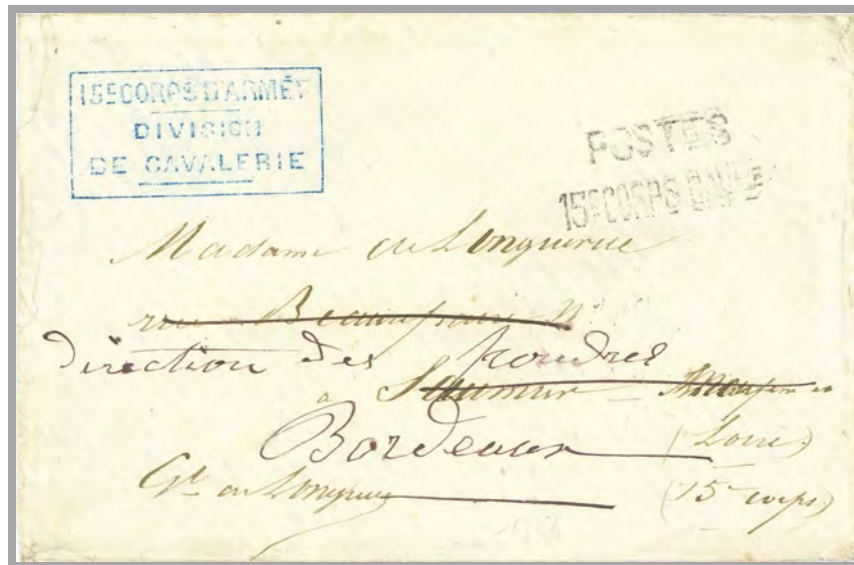 15E CORPS D'ARMÉE
DIVISION
DE CAVALERIE
POSTES
15E CORPS
Madame de Longuerue
rue Beaurepaire
Direction des Poudres
à Saumur
Bordeaux
Loire)
Gal de Longuerue
(15e corps)